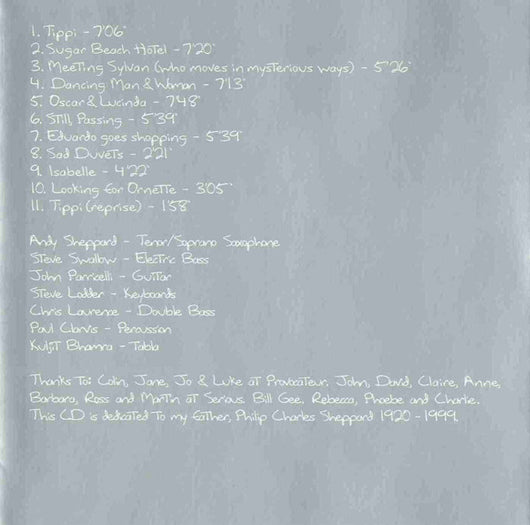 1. Tippi - 7'06"
2. Sugar Beach Hotel - 7'20"
3. Meeting Sylvan (who moves in mysterious ways) - 5'26"
4. Dancing Man & Woman - 7'13"
5. Oscar & Lucinda - 7'48"
6. Still, Passing - 5'39"
7. Eduardo goes shopping - 5'39"
8. Sad Duvets - 2'21"
9. Isabelle - 4'22"
10. Looking for Ornette - 3'05"
11. Tippi (reprise) - 1'58"
Andy Sheppard - Tenor/Soprano Saxophone
Steve Swallow - Electric Bass
John Parricelli - Guitar
Steve Lodder - Keyboards
Chris Laurence - Double Bass
Paul Clarvis - Percussion
Kuljit Bhamra - Tabla
Thanks To: Colin, Jane, Jo & Luke at Provocateur. John, David, Claire, Anne,
Barbara, Ross and Martin at Serious. Bill Gee. Rebecca, Phoebe and Charlie.
This CD is dedicated to my father, Philip Charles Sheppard 1920 - 1999.